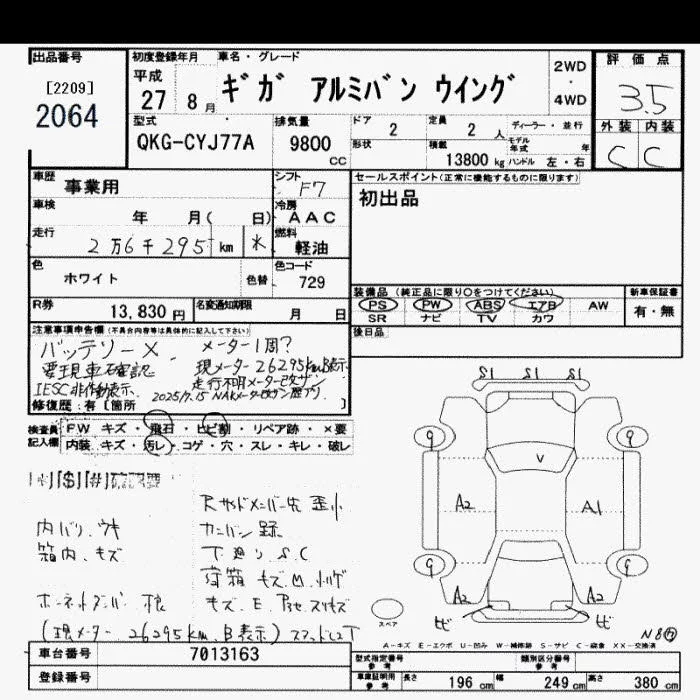 出品番号
[2209]
2064
初度登録年月
平成
27 8月
車名・グレード
ギガ アルミバン ウイング
2WD
・
4WD
評価点
3.5
外装 内装
C C
型式
QKG-CYJ77A
排気量
9800
CC
ドア
2
定員
2人
ディーラー・並行
形状
積載
13800 kg
モデル年式 年
ハンドル 左・右
車歴
事業用
シフト
F7
車検
年 月( 日)
冷房
AAC
走行
2万6千295 km
*
燃料
軽油
色
ホワイト
色替
色コード
729
R券
13,830円
名変通知期限
月 日
セールスポイント(正常に機能するものに限ります)
初出品
装備品 (純正品に限り○をつけてください)
PS PW ABS エアB AW
SR ナビ TV カワ
新車保証書
有・無
後日品
注意事項申告欄(不具合内容等は具体的に記入して下さい)
バッテリーX メーター1周?
要現車確認 現メーター26295km B表示
IESC非作動表示 走行不明メーター改ザン
2025/7.15 NAKメーター改ザン歴アリ
修復歴:有 [箇所 ]
検査員記入欄
FW キズ・飛石・ヒビ割・リペア跡・×要
内装 キズ・汚レ・コゲ・穴・スレ・キレ・破レ
Rサイドメンバー先 歪小
内バリ、ウキ カンバン跡
箱内、キズ 下廻り S.C
荷箱 キズ
キズ、E
(現メーター 26295km B表示)
S1 S1 S1
9 9
V
A2 A1
9 9
A2 A2
ヒビ ヒビ
スペア
A-キズ E-エクボ U-凹み W-補修跡 S-サビ C-腐食 XX-交換済
車台番号
7013163
登録番号
型式指定番号
参考
類別区分番号
参考
車庫証明用
参考
長さ 196 cm 幅 249 cm 高さ 380 cm